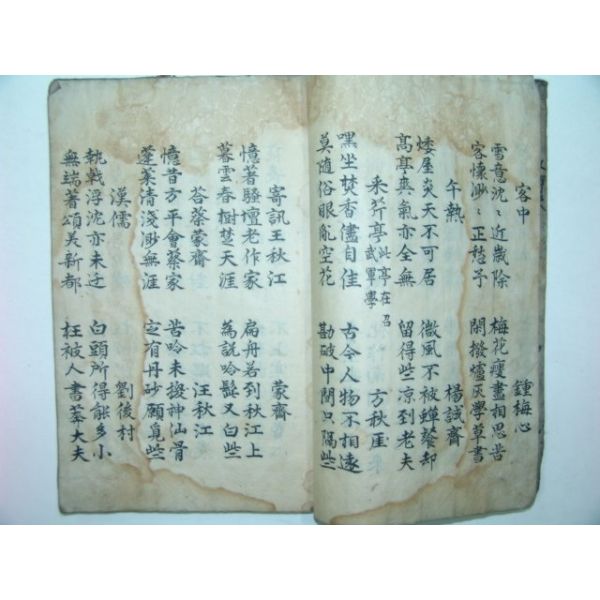 客中 鍾梅心
雪意沈〻近歲除 梅花瘦盡相思苦
客懷渺〻正愁予 閑撥爐灰學草書
午熱 楊誠齋
矮屋炎天不可居 微風不被蟬葵却
高亭爽氣亦全無 留得些凉到老夫
釆芹亭 此亭在召武軍學 方秋崖
嘿坐焚香儘自佳 古今人物不相遠
莫隨俗眼亂空花 勘破中間只隔些
寄訊王秋江 蒙齋
憶著騷壇老作家 扁舟若到秋江上
暮雲春樹楚天涯 為說吟髭又白些
答蔡蒙齋 汪秋江
憶昔方平會蔡家 苦吟未換神仙骨
蓬萊清淺渺無涯 定有丹砂願覓些
漢儒 劉後村
執戟浮沈亦未迂 白頭所得能多小
無端著頌美新都 枉被人書莽大夫